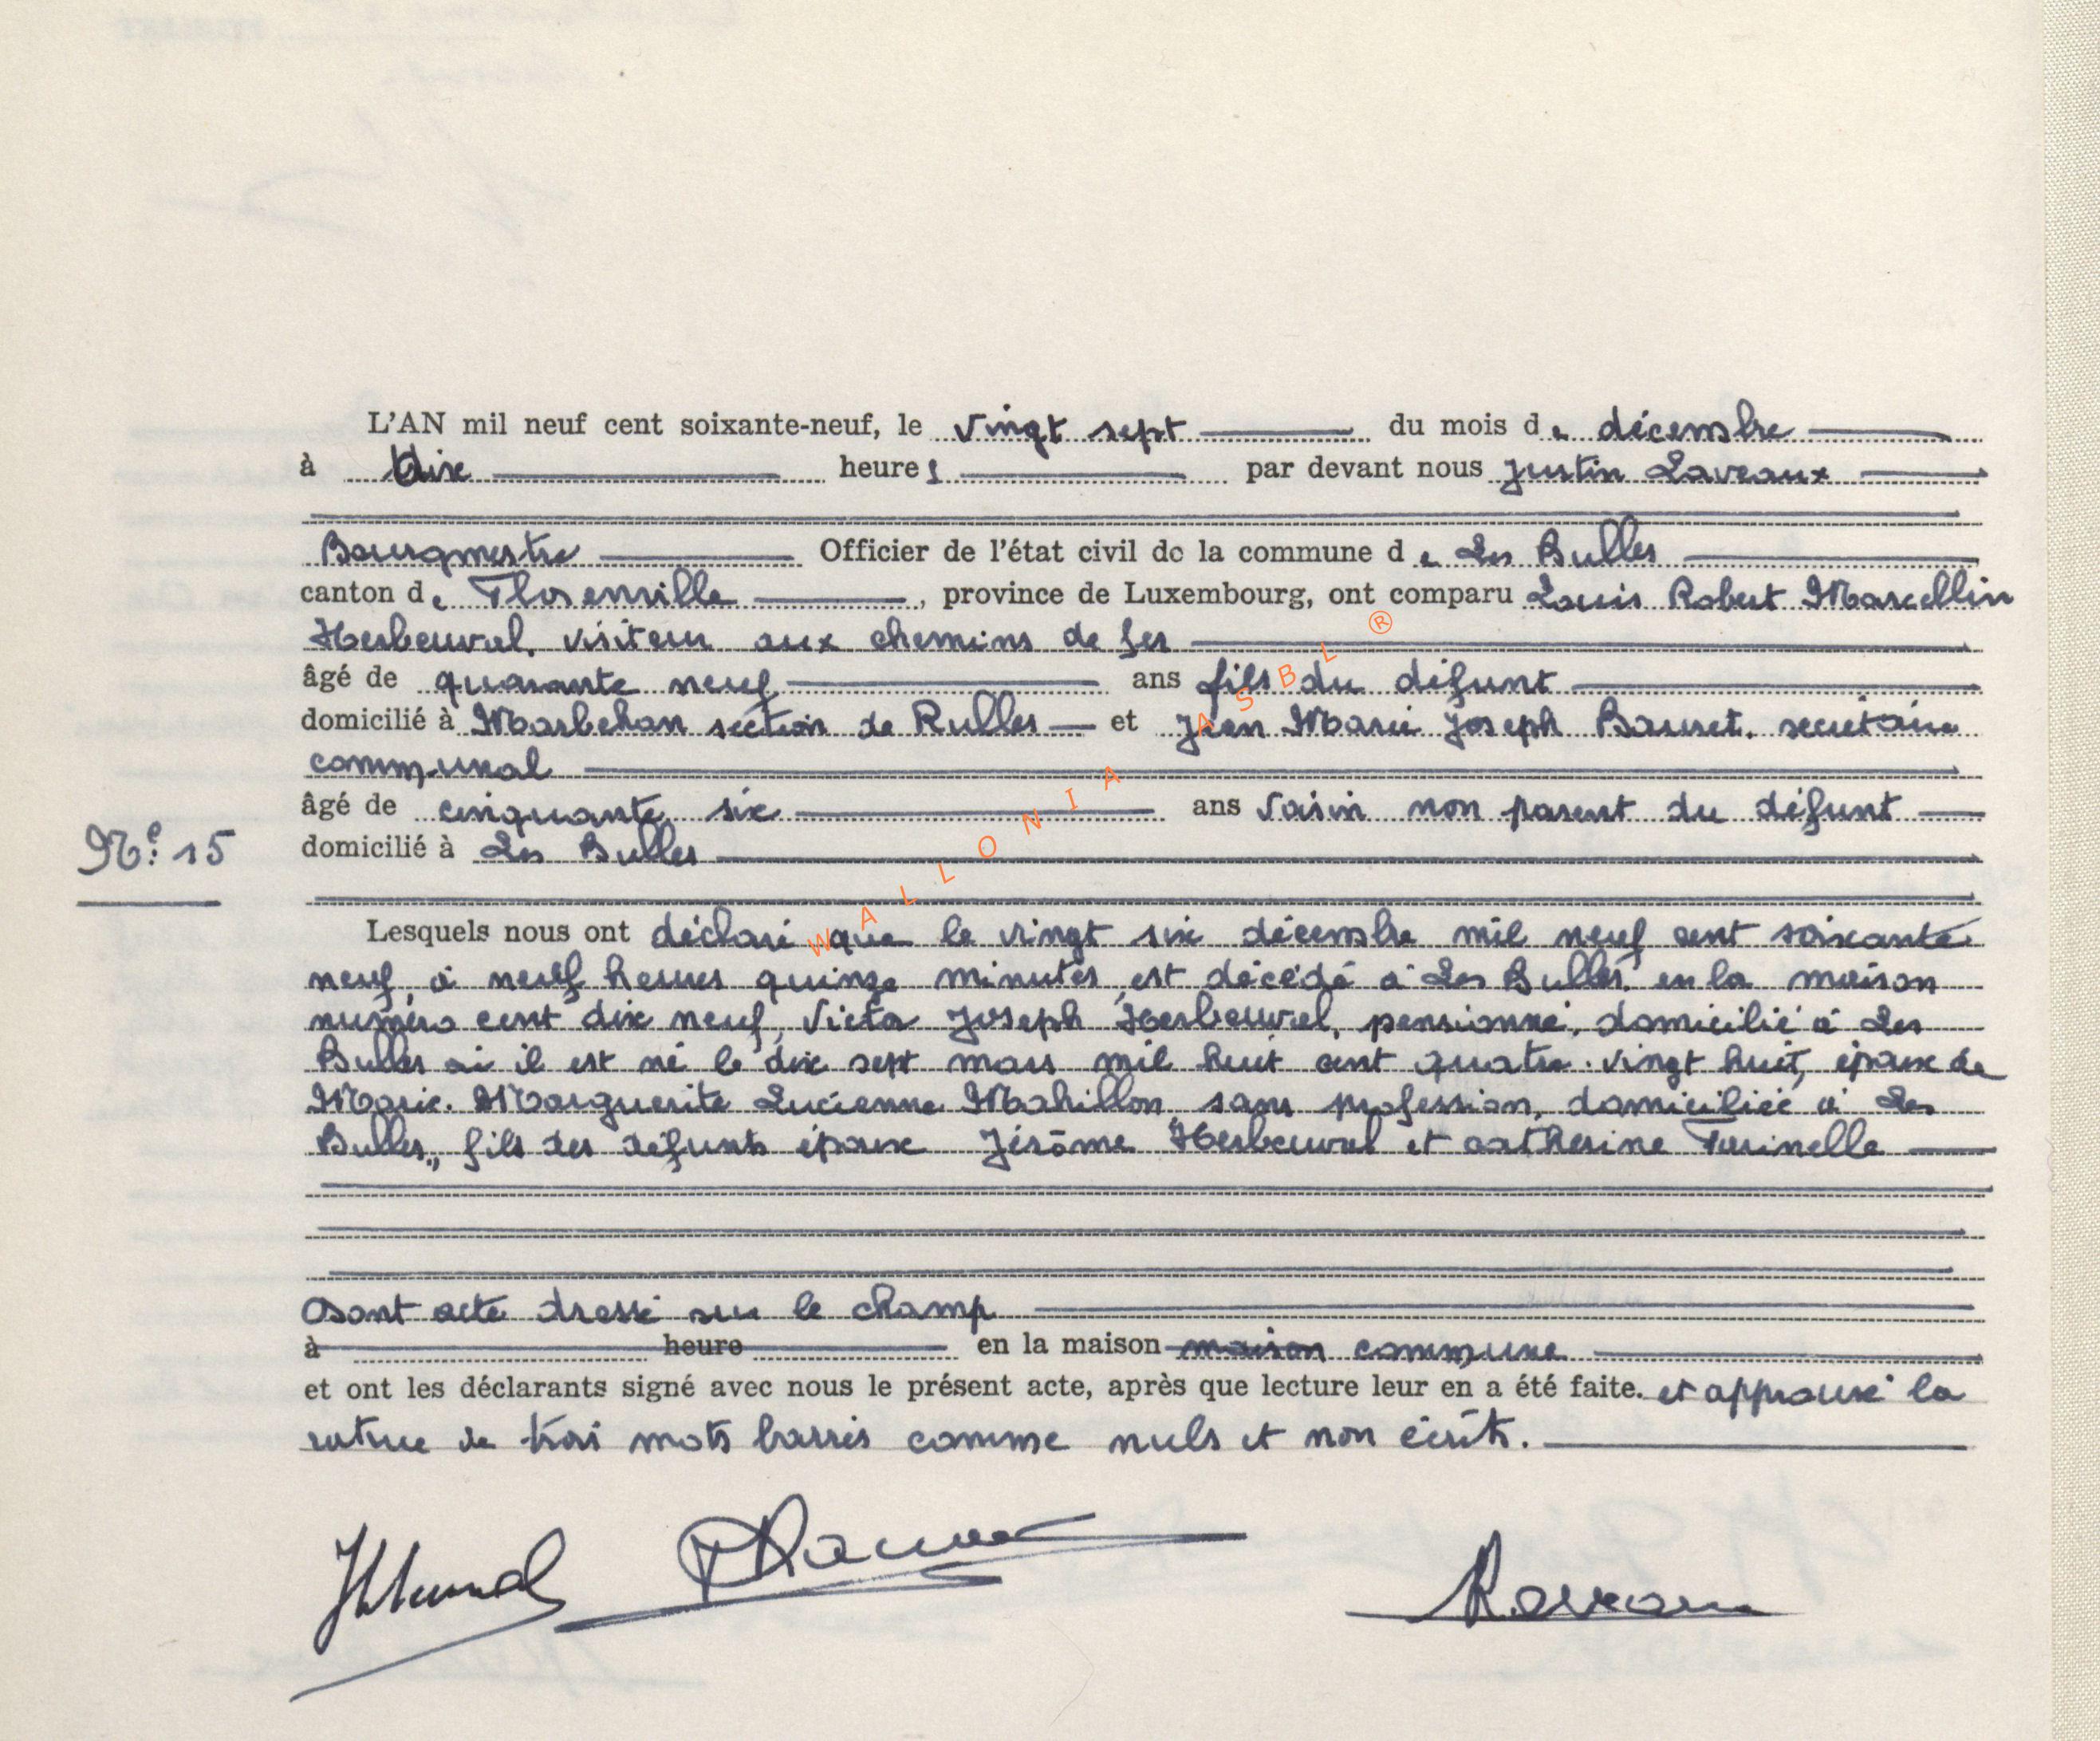 L'AN mil neuf cent soixante-neuf, le vingt sept du mois de décembre
à dix heures par devant nous Justin Laveaux
Bourgmestre Officier de l'état civil de la commune de Les Bulles
canton de Florenville, province de Luxembourg, ont comparu Louis Robert Marcellin
Herbeuval, visiteur aux chemins de fer
âgé de quarante neuf ans fils du défunt
domicilié à Marbehan section de Rulles et Jean Marie Joseph Bauret, secrétaire
communal
âgé de cinquante six ans voisin non parent du défunt
N° 15
domicilié à Les Bulles
Lesquels nous ont déclaré que le vingt six décembre mil neuf cent soixante
neuf, à neuf heures quinze minutes, est décédé à Les Bulles, en la maison
numéro cent dix neuf, Victor Joseph Herbeuval, pensionné, domicilié à Les
Bulles où il est né le dix sept mars mil huit cent quatre-vingt huit, époux de
Marie-Marguerite Lucienne Mahillon, sans profession, domiciliée à Les
Bulles, fils des défunts époux Jérôme Herbeuval et Catherine Turinelle
Dont acte dressé sur le champ
à heure en la maison maison commune
et ont les déclarants signé avec nous le présent acte, après que lecture leur en a été faite. et approuvé la
rature de trois mots barrés comme nuls et non écrits.
WALLONIA ASBL ®